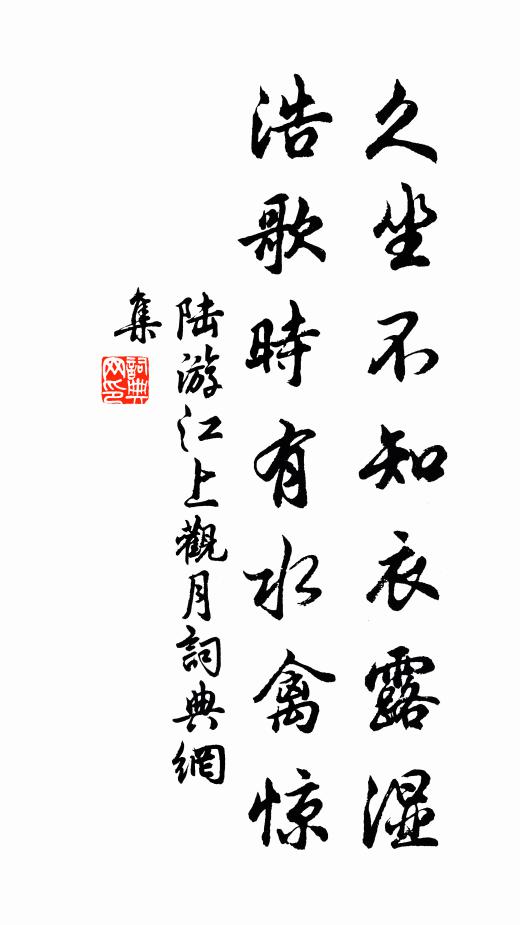 久坐不知衣露湿
浩歌時有水禽惊
陆游江上觀月詞典網
集
詞典網印